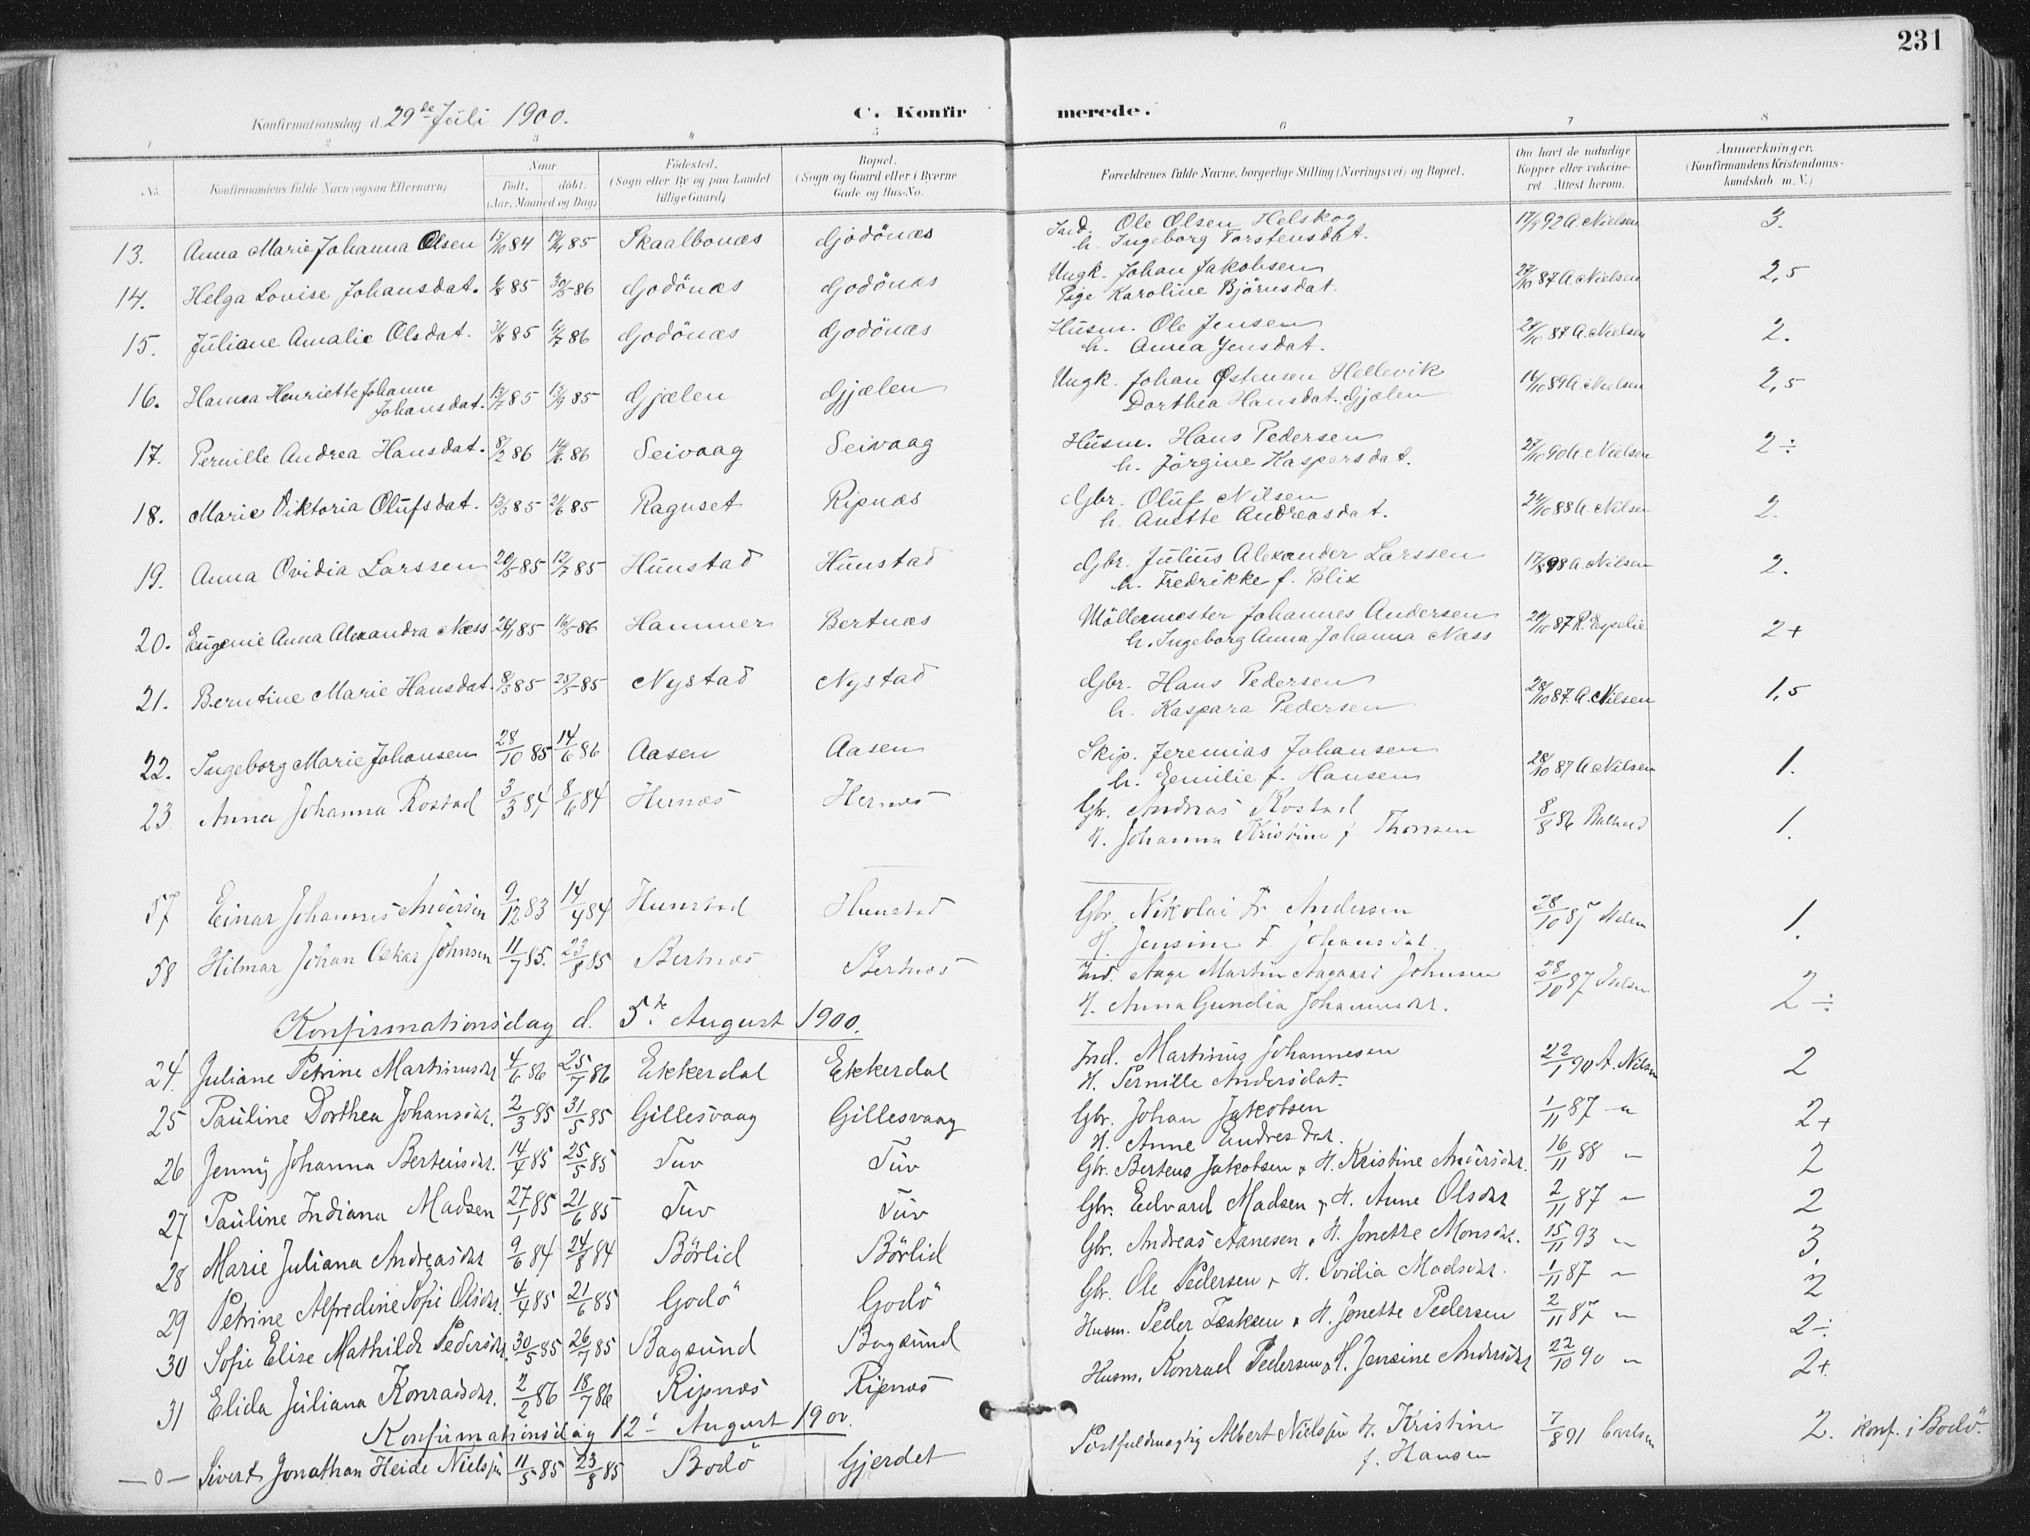 231
Konfirmationsdag d. 29de Juli 1900. C. Konfirmerede.
1 2 3 4 5 6 7 8
No. Konfirmandens fulde Navn (ogsaa Efternavn) Naar født. døbt. (Aar, Maaned og Dag) Fødested. (Sogn eller By og paa Landet tillige Gaard) Bopæl. (Sogn og Gaard eller i Byerne Gade og Hus-No. Forældrenes fulde Navne, borgerlige Stilling (Næringsvei) og Bopæl. Om havt de naturlige Kopper eller vaccineret Attest herom. Anmærkninger. (Konfirmandens Kristendomskundskab m. V.)
13. Anna Marie Johanna Olsen 84 85 Skaalbonæs Godönæs Ind. Ole Olsen Helskog 92 A. Nielsen 3.
h. Ingeborg Torstensdat.
14. Helga Lovise Johansdat. 85 86 Godönæs Godönæs Ungk. Johan Jakobsen 27/10 87 A. Nielsen 2,5
Pige Karoline Björnsdat.
15. Juliane Amalie Olsdat. 85 86 Godönæs Godönæs Husm. Ole Jensen 27/10 87 A. Nielsen 2.
h. Anna Jensdat.
16. Hanna Henriette Johanne 85 85 Gjælen Gjælen Ungk. Johan Østensen Hellevik 89 A. Nielsen 2,5
Johansdat. Dorthea Hansdat. Gjælen
17. Pernille Andrea Hansdat. 8/2 86 86 Seivaag Seivaag Husm. Hans Pedersen 27/10 90 A. Nielsen 2 ÷
h. Jörgine Kaspersdat.
18. Marie Viktoria Olufsdat. 85 21/6 85 Raguset Ripnæs Gbr. Oluf Nilsen 88 A. Nilsen 2.
h. Anette Andreasdat.
19. Anna Ovidia Larssen 20/5 85 12/7 85 Hunstad Hunstad Gbr. Julius Alexander Larssen 98 A. Nilsen 2.
h. Fredrikke f. Blix
20. Eugenie Anna Alexandra Næss 85 16/5 86 Hammer Bertnæs Möllermester Johannes Andersen 87 R. Espelie 2+
h. Ingeborg Anna Johanna Næss
21. Berntine Marie Hansdat. 8/3 85 25/5 85 Nystad Nystad Gbr. Hans Pedersen 28/10 87. A. Nilsen 1,5
h. Kaspara Pedersen
22. Ingeborg Marie Johansen 28/10 85 14/6 86 Aasen Aasen Skip. Jeremias Johansen 28/10 87 A. Nilsen 1.
h. Emilie f. Hansen
23 Anna Johanna Rostad 3/3 84 8/6 84 Hernæs Hernæs Gbr. Andreas Rostad 8/8 86 1.
H. Johanna Kristine f. Thomsen
57 Einar Johannes Andersen 9/12 83 14/4 84 Hunstad Hunstad Gbr. Nikolai Fr. Andersen 28/10 87 Nilsen 1.
H. Jensine F. Johansdat.
58 Hilmar Johan Oskar Johnsen 11/7 85. 23/8 85 Bertnæs Bertnæs Ind. Aage Martin Aagaard Johnsen 28/10 87 Nilsen 2 ÷
H. Anna Gundia Johannesdat.
Konfirmationsdag d. 5te August 1900.
24. Juliane Petrine Martinusdat 4/6 86 25/7 86 Ekkerdal Ekkerdal Ind. Martinus Johannesen 22/1 90 A. Nilsen 2
H. Pernille Andersdat.
25 Pauline Dorthea Johansdat. 2/3 85 31/5 85 Gillesvaag Gillesvaag Gbr. Johan Jakobsen 1/11 87 " 2+
H. Anne Endresdat.
26 Jenny Johanna Bertensdat. 14/4 85 25/5 85 Tuv Tuv Gbr. Bertens Jakobsen & H. Kristine Andersdat. 16/11 88 " 2
27 Pauline Indiana Madsen 27/1 85 21/6 85 Tuv Tuv Gbr. Edvard Madsen & H. Anne Olsdat 2/11 87 " 2
28 Marie Juliana Andreasdat 9/6 84 24/8 84 Börlid Börlid Gbr. Andreas Aanesen & H. Jonette Monsdat. 15/11 93 " 3
29 Petrine Alfredine Sofie Olsdat. 4/4 85 21/6 85 Godö Godö Gbr. Ole Pedersen & H. Ovidia Madsdat. 1/11 87 " 2
30 Sofie Elise Mathilde Pedersdat. 30/5 85 26/7 85 Bagsund Bagsund Husm. Peder Isaksen & H. Jonette Pedersen 2/11 87 " 2÷
31 Elida Juliana Konradsdat. 2/2 86 18/7 86 Ripnæs Ripnæs Husm. Konrad Pedersen & H. Jensine Andersdat 22/10 90 " 2+
Konfirmationsdag 12. August 1900.
—0— Sivert Jonathan Heide Nielsen 11/5 85 23/8 85 Bodö Gjerdet Postfuldmægtig Albert Nielsen H. Kristine 7/8 91 Carlsen 2. konf. i Bodö.
f. Hansen